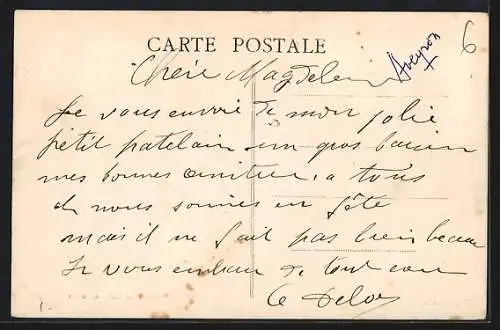 CARTE POSTALE
6
Aveyron
Chère Magdeleine
Je vous envoie de mon jolie
petit patelain un gros baiser
mes bonnes amities a tous
nous sommes en fête
mais il ne fait pas bien beau
Je vous embra de tout cœur